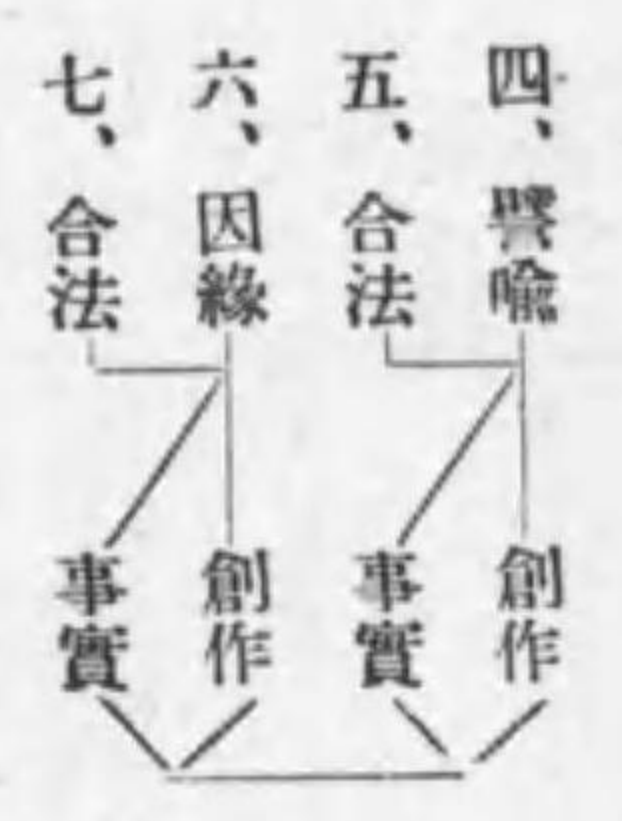 四、譬喻
五、合法
六、因緣
七、合法
創作
事實
創作
事實